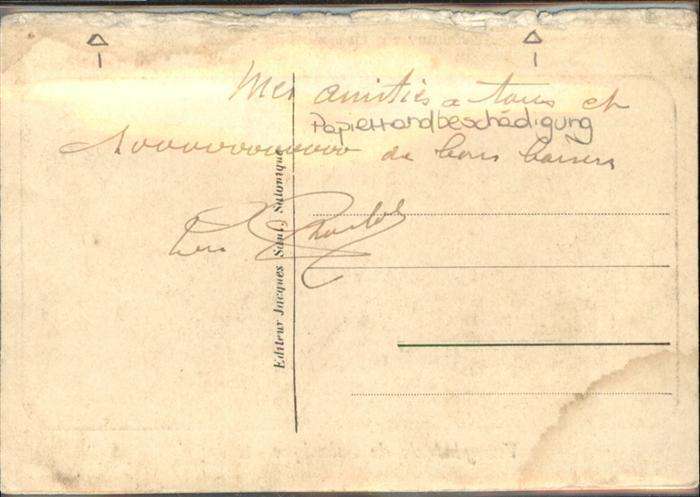 Mes amitiés a tous et
Papierrandbeschädigung
1000000000000 de bons baisers
Editeur Jacques Saul, Salonique